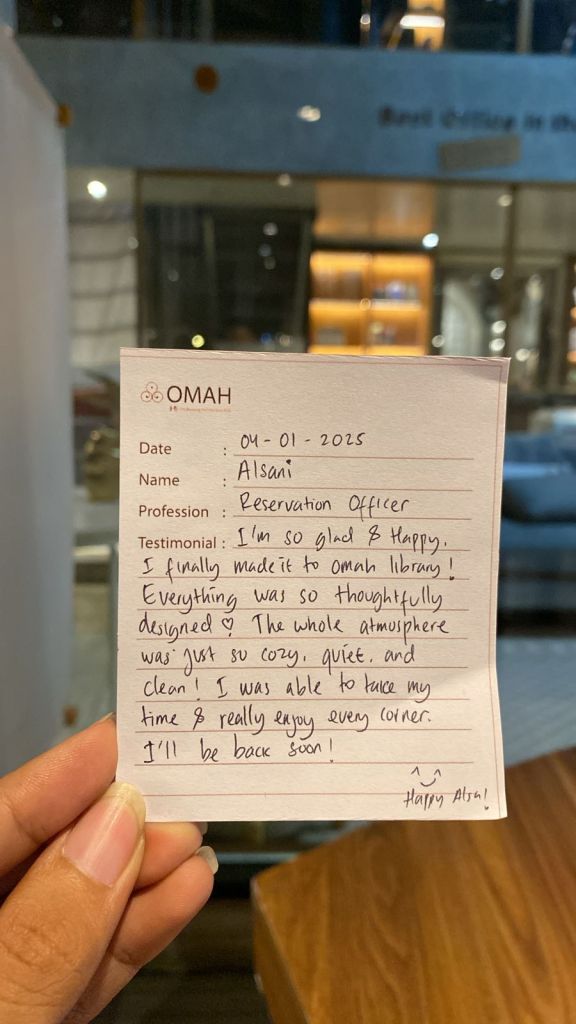 Best Office in the
OMAH
Date : 04-01-2025
Name : Alsani
Profession : Reservation Officer
Testimonial : I'm so glad & Happy.
I finally made it to omah library!
Everything was so thoughtfully
designed ♡ The whole atmosphere
was just so cozy, quiet, and
clean! I was able to take my
time & really enjoy every corner.
I'll be back soon!
Happy Alsa!